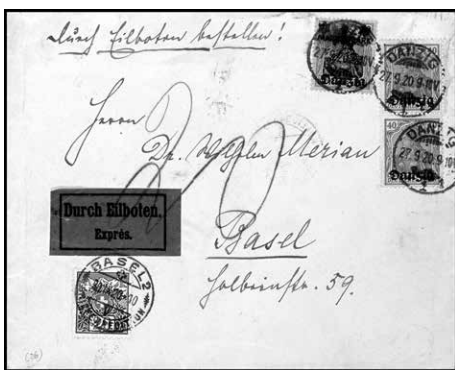 Durch Eilboten bestellen!
DANZIG
27.9.20.9-10V
Danzig
DANZIG
27.9.20.9-10V
Danzig
40
Danzig
Herrn
Dr. Wilhelm Merian
Durch Eilboten.
Exprès.
Basel
Holbeinstr. 59.
BASEL 2